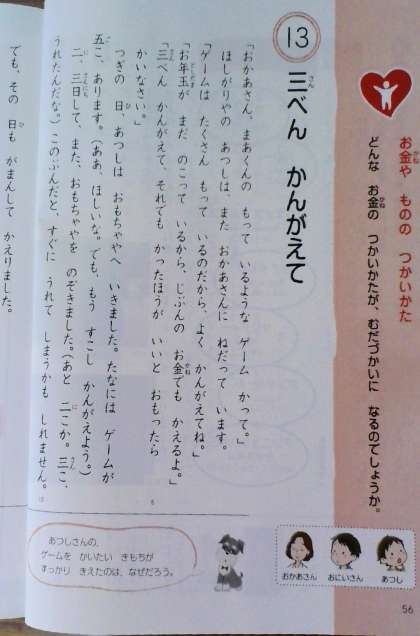 お金や ものの つかいかた
どんな お金の つかいかたが、むだづかいに なるのでしょうか。
13
三べん かんがえて
「おかあさん、まあくんの もって いるような ゲーム かって。」
ほしがりやの あつしは、また おかあさんに ねだって います。
「ゲームは たくさん もって いるのだから、よく かんがえてね。」
「お年玉が まだ のこって いるから、じぶんの お金でも かえるよ。」
「三べん かんがえて、それでも かったほうが いいと おもったら
かいなさい。」
つぎの 日、あつしは おもちゃやへ いきました。たなには ゲームが
五こ、あります。(ああ、ほしいな。でも、もう すこし かんがえよう。)
二、三日して、また、おもちゃやを のぞきました。(あと 二こか。三こ、
うれたんだな。)このぶんだと、すぐに うれて しまうかも しれません。
でも、その 日も がまんして かえりました。
あつしさんの、
ゲームを かいたい きもちが
すっかり きえたのは、なぜだろう。
おかあさん
おにいさん
あつし
56